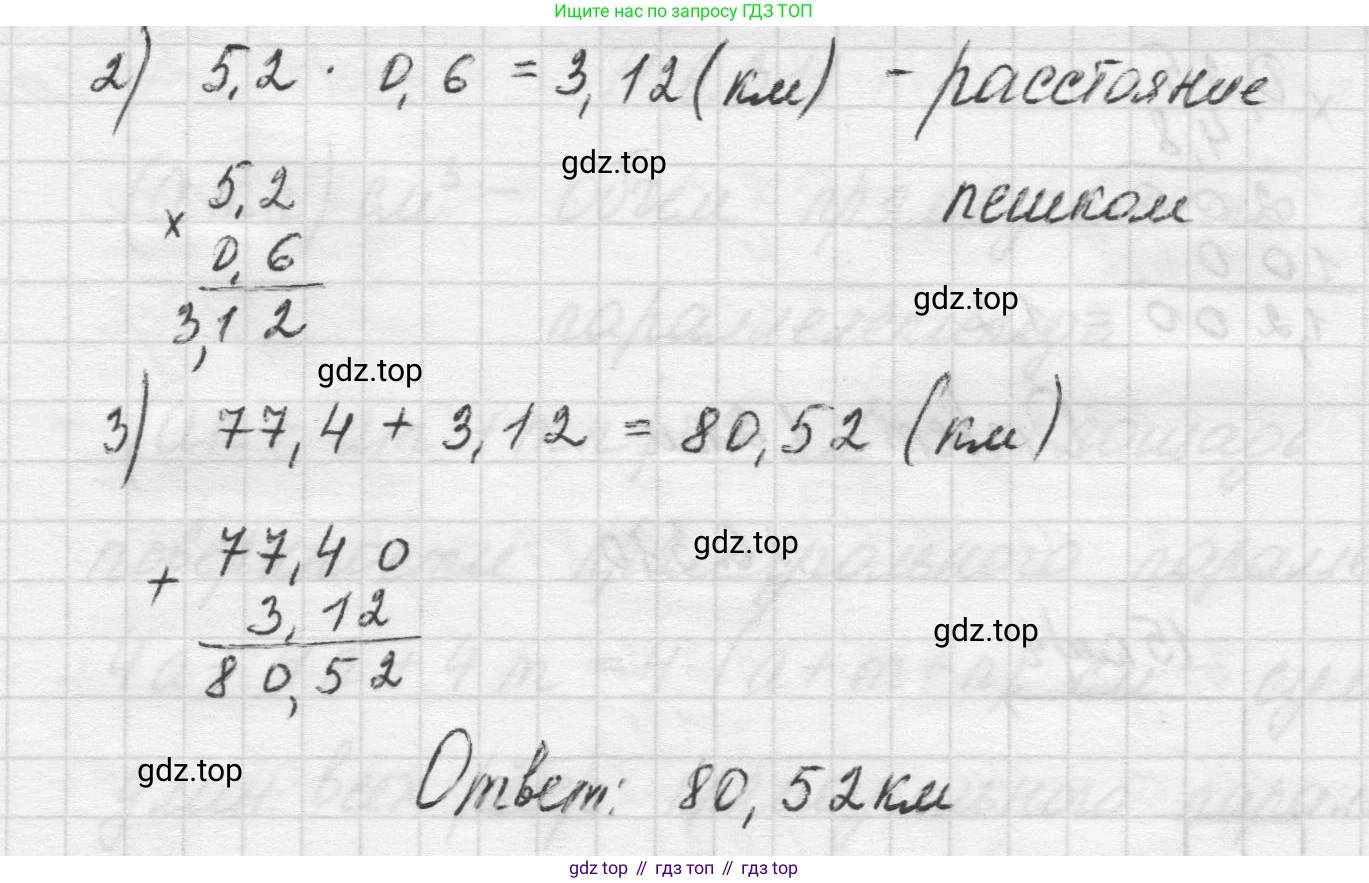 Ищите нас по запросу ГДЗ ТОП
2) 5,2 · 0,6 = 3,12 (км) - расстояние
gdz.top
пешком
× 5,2
0,6
3,12
gdz.top
gdz.top
3) 77,4 + 3,12 = 80,52 (км)
gdz.top
+ 77,40
3,12
80,52
gdz.top
gdz.top
Ответ: 80,52 км
gdz top // гдз топ // гдз top